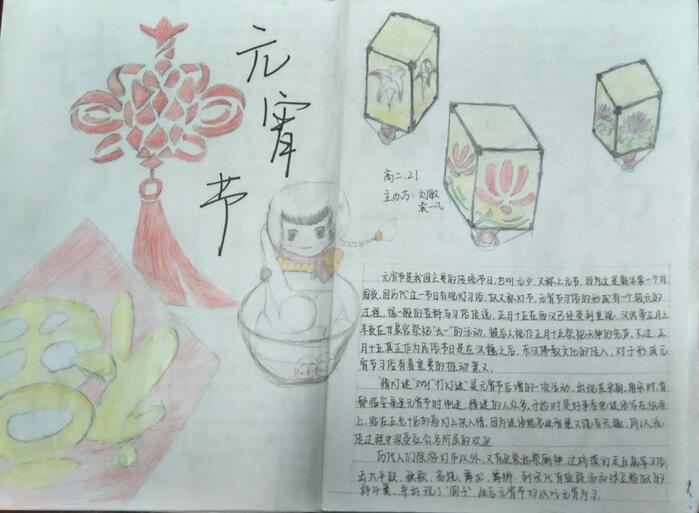 元宵节
高二.21
主办方:刘敏
袁一凡
元宵节是我国主要的传统节日,也叫元夕,又称上元节,因为这是新年第一个月
圆夜,因历代这一节日有观灯习俗,故又称灯节。元宵节习俗的形成有一个较长的
过程,据一般的资料与习俗传说,正月十五在西汉已经受到重视,汉武帝正月上
辛夜在甘泉宫祭祀"太一"的活动,被后人视作正月十五祭祀天神的先声。不过,正
月十五真正作为民俗节日是在汉魏之后,东汉佛教文化的传入,对于形成元
宵节习俗有着重要的推动意义。
"猜灯谜"又叫"打灯谜"是元宵节后增的一项活动,出现在宋朝。南宋时,首
都临安每逢元宵节时制迷,猜谜的人众多。开始时是好事者把谜语写在纸条
上,贴在五光十色的彩灯上供人猜。因为谜语能启迪智慧又饶有兴趣,所以流
传过程中深受社会各阶层的欢迎
历代人们除游灯市以外,又有迎紫姑祭厕神、过桥摸钉走百病等习俗,
击太平鼓、秧歌、高跷、舞龙、舞狮